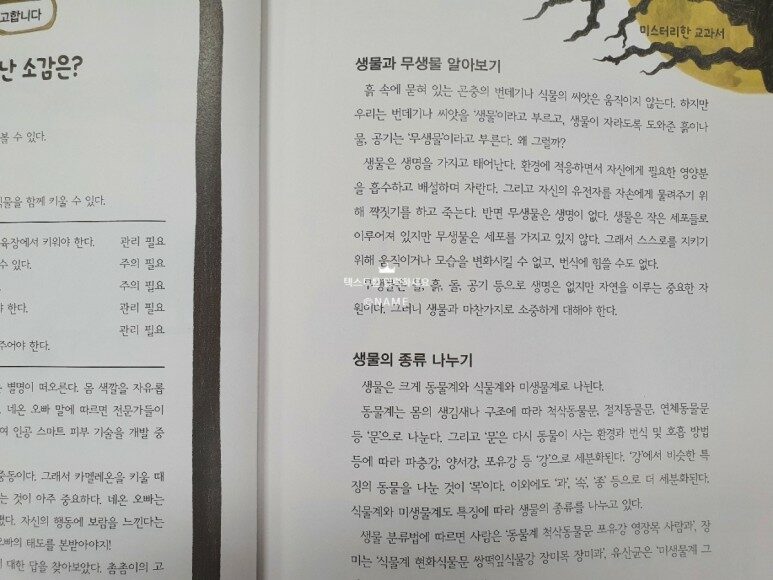 고합니다
난 소감은?
볼 수 있다.
식물을 함께 키울 수 있다.
육장에서 키워야 한다. 관리 필요
수 있다. 주의 필요
주의 필요
야 한다. 관리 필요
관리 필요
주어야 한다.
는 별명이 떠오른다. 몸 색깔을 자유롭
네온 오빠 말에 따르면 전문가들이
여 인공 스마트 피부 기술을 개발 중
중동이다. 그래서 카멜레온을 키울 때
는 것이 아주 중요하다. 네온 오빠는
했다. 자신의 행동에 보람을 느낀다는
오빠의 태도를 본받아야지!
에 대한 답을 찾아보았다. 촘촘이의 고
미스터리한 교과서
생물과 무생물 알아보기
흙 속에 묻혀 있는 곤충의 번데기나 식물의 씨앗은 움직이지 않는다. 하지만
우리는 번데기나 씨앗을 '생물'이라고 부르고, 생물이 자라도록 도와준 흙이나
물, 공기는 '무생물'이라고 부른다. 왜 그럴까?
생물은 생명을 가지고 태어난다. 환경에 적응하면서 자신에게 필요한 영양분
을 흡수하고 배설하며 자란다. 그리고 자신의 유전자를 자손에게 물려주기 위
해 짝짓기를 하고 죽는다. 반면 무생물은 생명이 없다. 생물은 작은 세포들로
이루어져 있지만 무생물은 세포를 가지고 있지 않다. 그래서 스스로를 지키기
위해 움직이거나 모습을 변화시킬 수 없고, 번식에 힘쓸 수도 없다.
무생물은 물, 흙, 돌, 공기 등으로 생명은 없지만 자연을 이루는 중요한 자
원이다. 그러니 생물과 마찬가지로 소중하게 대해야 한다.
©NAME
생물의 종류 나누기
생물은 크게 동물계와 식물계와 미생물계로 나뉜다.
동물계는 몸의 생김새나 구조에 따라 척삭동물문, 절지동물문, 연체동물문
등 '문'으로 나눈다. 그리고 '문'은 다시 동물이 사는 환경과 번식 및 호흡 방법
등에 따라 파충강, 양서강, 포유강 등 '강'으로 세분화된다. '강'에서 비슷한 특
징의 동물을 나눈 것이 '목'이다. 이외에도 '과', '속', '종' 등으로 더 세분화된다.
식물계와 미생물계도 특징에 따라 생물의 종류를 나누고 있다.
생물 분류법에 따르면 사람은 '동물계 척삭동물문 포유강 영장목 사람과', 장
미는 '식물계 현화식물문 쌍떡잎식물강 장미목 장미과', 유산균은 '미생물계 그